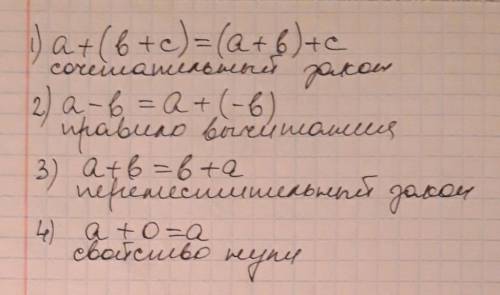 1) а+(в+с)=(а+в)+с
сочетательный закон
2) а-в = а+(-в)
правило вычитания
3) а+в=в+а
переместительный закон
4) а+0=а
свойство нуля